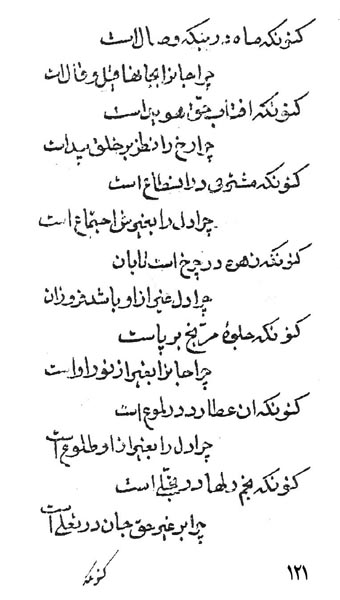 کنونکه ماه در بنکه وصال است
چرا جانرا بجانها قیل و قال است
کنونکه افتاب حق هویدا است
چرا رخ را نظر بر خلق پیداست
کنونکه مشتری در انطباع است
چرا دل را بغیرش اجتماع است
کنونکه زهره در چرخ است تابان
چرا دل غیر از او باشد فروزان
کنونکه جلوهٔ مریخ برپاست
چرا جانرا بغیر از نور اواست
کنونکه ان عطارد در لموع است
چرا دل را بغیر از او طلوع است
کنونکه نجم دلها در تجلی است
چرا بر غیر حق جان در تعلی است
کنونکه
۱۲۱